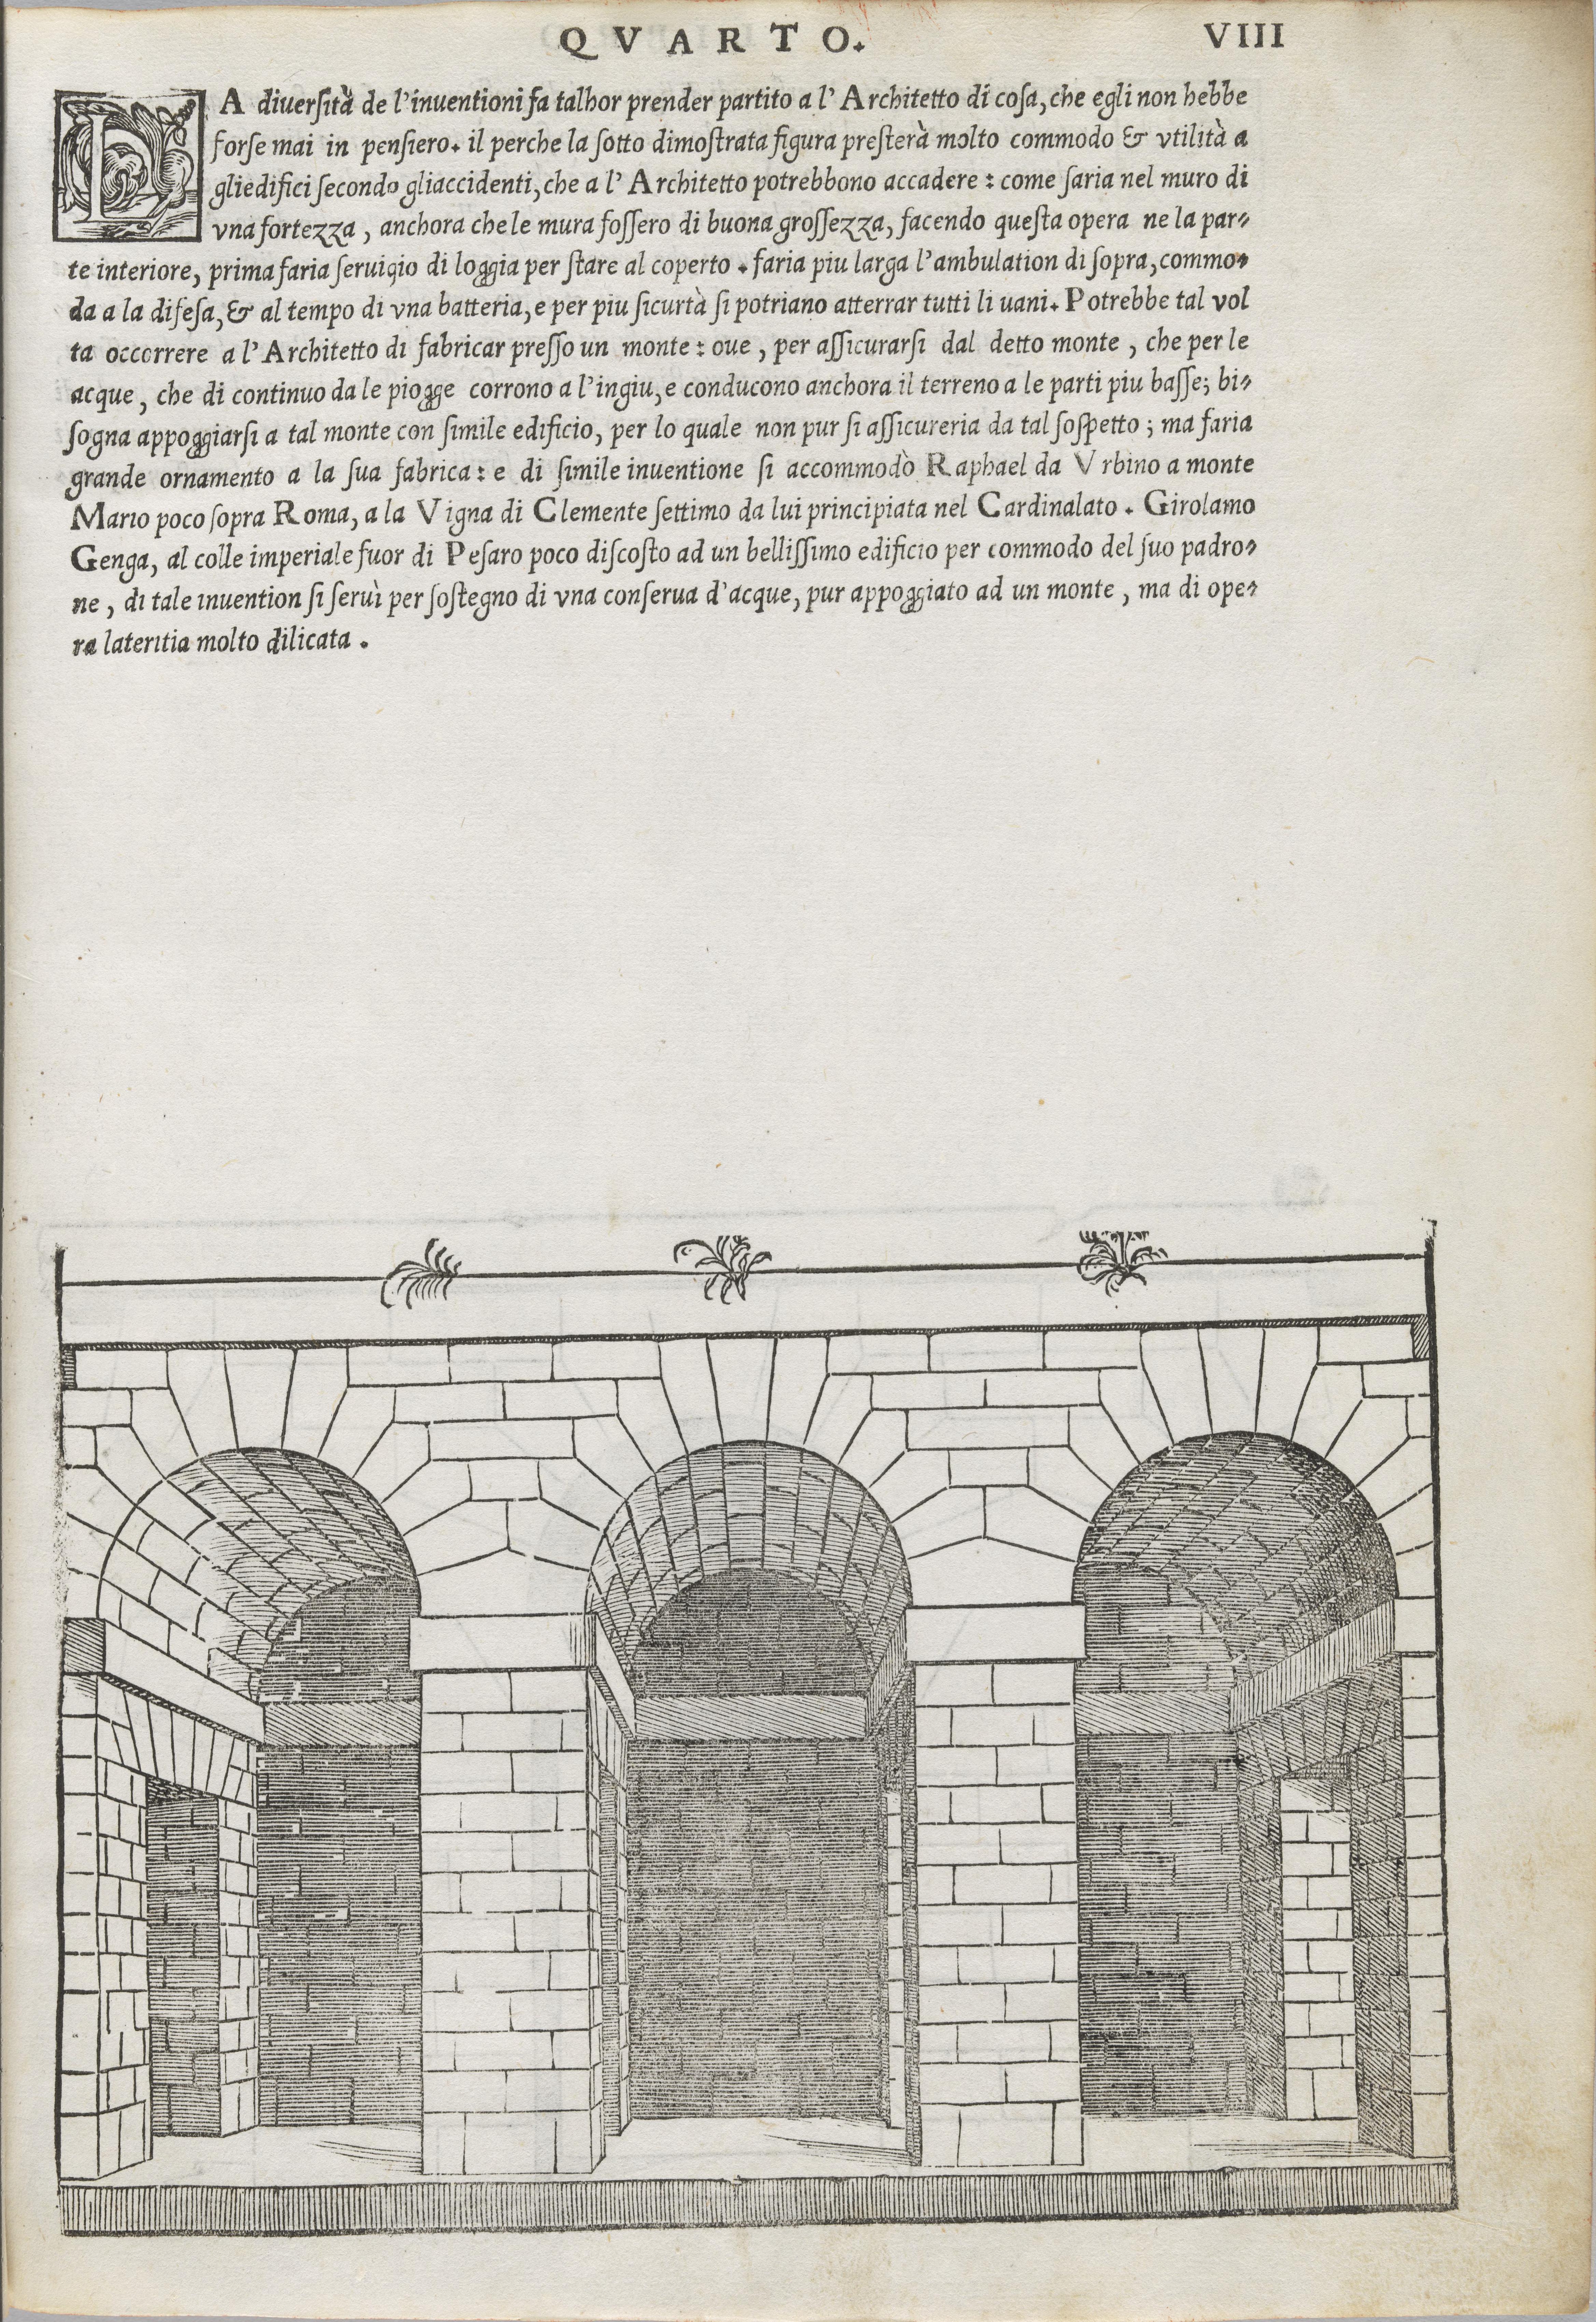 QVARTO.
VIII
LA diuersità de l'inuentioni fa talhor prender partito a l'Architetto di cosa, che egli non hebbe
forse mai in pensiero. il perche la sotto dimostrata figura presterà molto commodo & vtilità a
gliedifici secondo gliaccidenti, che a l'Architetto potrebbono accadere: come saria nel muro di
vna fortezza, anchora che le mura fossero di buona grossezza, facendo questa opera ne la par-
te interiore, prima faria seruigio di loggia per stare al coperto. faria piu larga l'ambulation di sopra, commo-
da a la difesa, & al tempo di vna batteria, e per piu sicurtà si potriano atterrar tutti li uani. Potrebbe tal vol
ta occorrere a l'Architetto di fabricar presso un monte: oue, per assicurarsi dal detto monte, che per le
acque, che di continuo da le piogge corrono a l'ingiu, e conducono anchora il terreno a le parti piu basse; bi-
sogna appoggiarsi a tal monte con simile edificio, per lo quale non pur si assicureria da tal sospetto; ma faria
grande ornamento a la sua fabrica: e di simile inuentione si accommodò Raphael da Vrbino a monte
Mario poco sopra Roma, a la Vigna di Clemente settimo da lui principiata nel Cardinalato. Girolamo
Genga, al colle imperiale fuor di Pesaro poco discosto ad un bellissimo edificio per commodo del suo padro-
ne, di tale inuention si seruì per sostegno di vna conserua d'acque, pur appoggiato ad un monte, ma di ope-
ra lateritia molto dilicata.